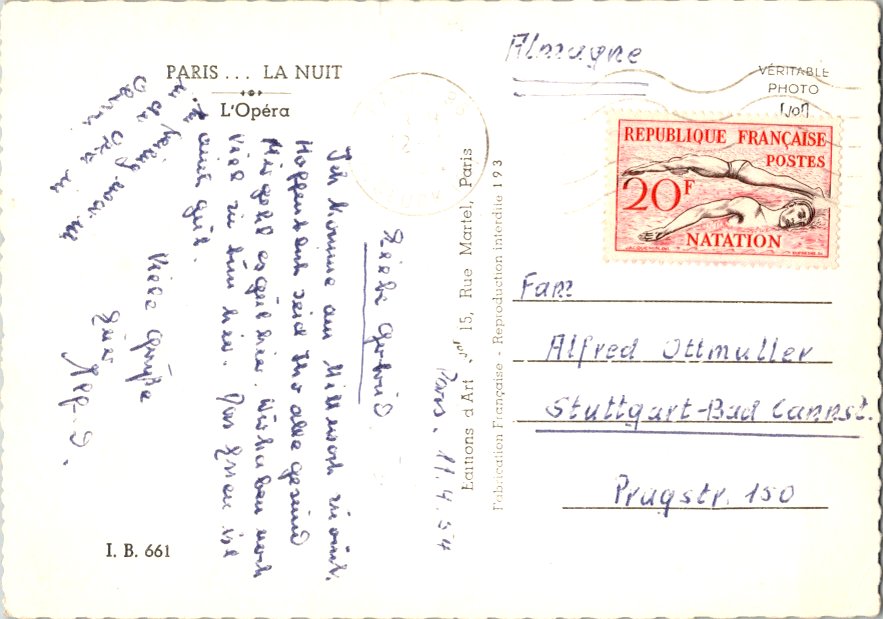 PARIS ... LA NUIT
L'Opéra
Paris, 11.4.54
Ich komme am Mittwoch
Hoffentlich seid Ihr alle gesund
Mir geht es gut hier. Wir haben noch
viel zu tun hier. Das Essen ist
auch gut.
Viele Grüße
I. B. 661
Editions d'Art Yvon 15, Rue Martel, Paris
Fabrication Française - Reproduction interdite 193
Almagne
VÉRITABLE
PHOTO
Yvon
REPUBLIQUE FRANÇAISE
POSTES
20F
NATATION
Fam
Alfred Ottmuller
Stuttgart-Bad Cannst.
Pragstr. 150